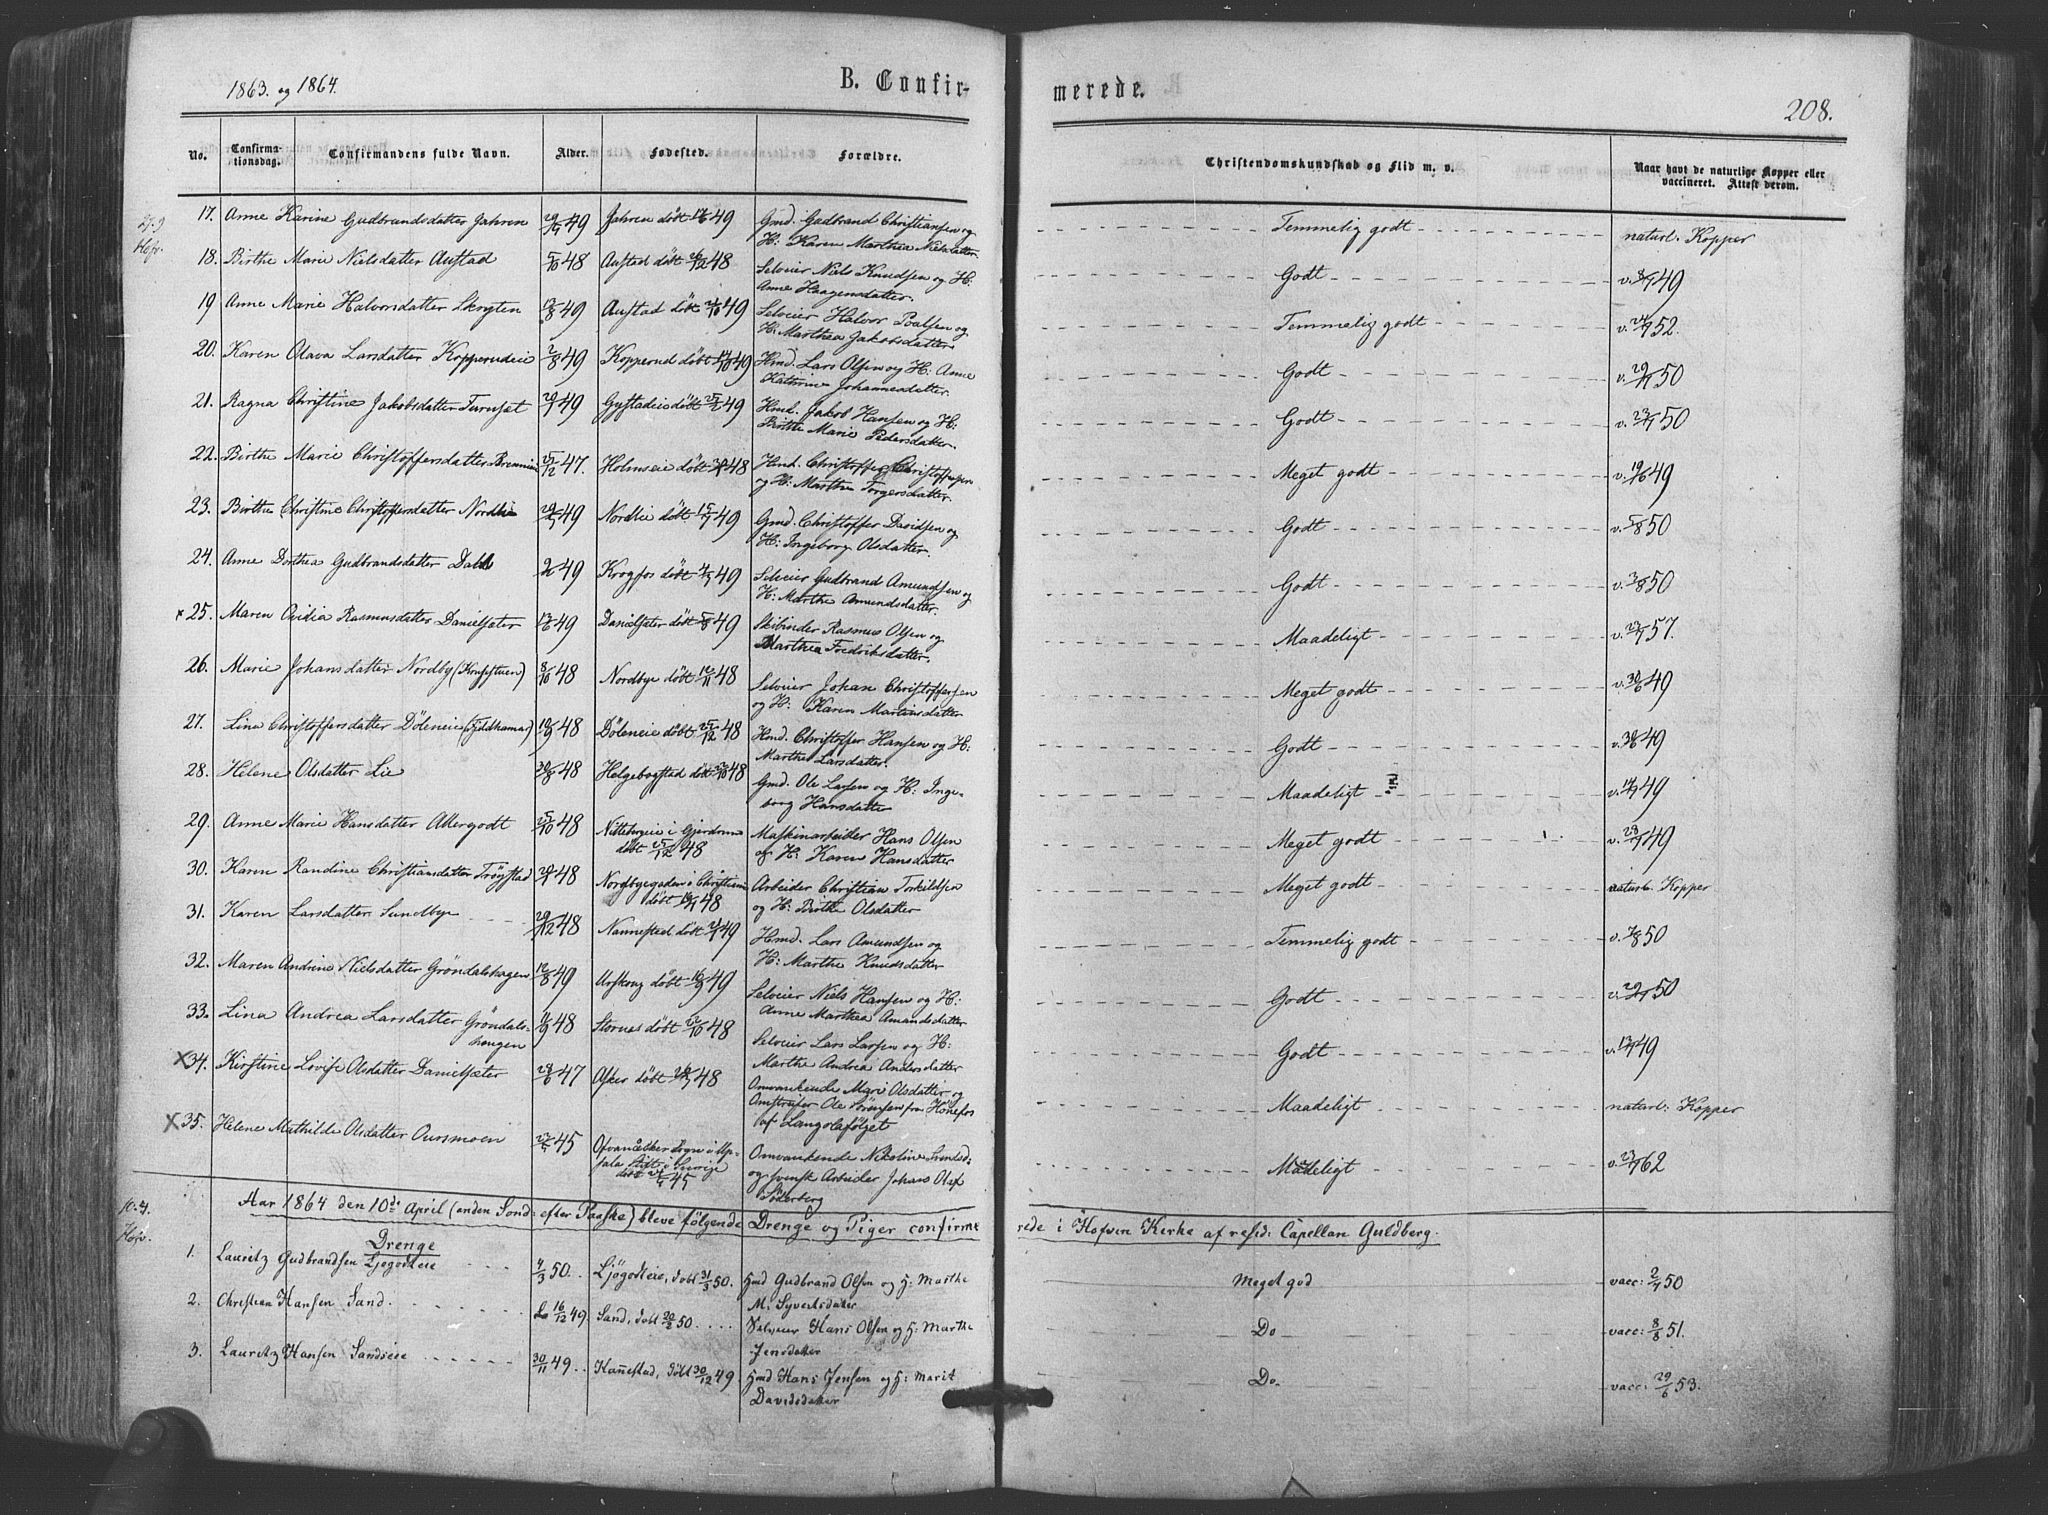 1863. og 1864.
B. Confir-
merede.
208.
No.
Confirma-
tionsdag.
Confirmandens fulde Navn.
Alder.
Fødested.
Forældre.
Christendomskundskab og Flid m. v.
Naar havt de naturlige Kopper eller
vaccineret. Attest derom.
27.9
17. Anne Karine Gudbrandsdatter Jahren 49 Jahren döbt 49 Gmd. Gudbrand Christiansen og
H: Karen Marthea Nielsdatter. Temmelig godt naturl. Kopper
18. Birthe Marie Nielsdatter Austad 5/10 48 Austad döbt 48 Selveier Niels Knudsen og H:
Anne Haagensdatter. Godt v. 49
19 Anne Marie Halvorsdatter Skryten 49 Austad döbt 49 Selveier Halvor Poalsen og
H: Marthea Jakobsdatter Temmelig godt v. 52.
20. Karen Olava Larsdatter Kopperudeie 2/8 49 Kopperud döbt 49 Hmd. Lars Olsen og H: Anne
Kathrine Johannesdatter. Godt v. 50
21. Ragna Christine Jakobsdatter Turnsæt 49 Gystadeie döbt 49 Hmd. Jakob Hansen og H:
Birthe Marie Pedersdatter. Godt v. 50
22. Birthe Marie Christoffersdatter Brenneie 25/12 47. Holmseie döbt 48 Hmd. Christoffer Christoffersen
og H: Marthe Torgersdatter. Meget godt v. 49
23. Birthe Christine Christoffersdatter Nordlie 49 Nordlie döbt 15/7 49 Gmd. Christoffer Davidsen og
H: Ingeborg Olsdatter. Godt v. 5/8 50
24. Anne Dorthea Gudbrandsdatter Dahl 49 Krogfos döbt 49 Selveier Gudbrand Amundsen og
H: Marthe Amundsdatter. Godt v. 50
x 25. Maren Ovidia Rasmusdatter Danielsæter 49 Danielsæter döbt 49 Skibinder Rasmus Olsen og
Marthea Fredriksdatter. Maadeligt v. 57.
26. Marie Johansdatter Nordby (Krystuen) 8/10 48 Nordbye döbt 48 Selveier Johan Christoffersen
og H: Karen Martinsdatter Meget godt v. 49
27. Lina Christoffersdatter Döleneie (Fjeldhamar) 48 Döleneie döbt 25/12 48 Hmd. Christoffer Hansen og H:
Marthe Larsdatter. Godt v. 49
28. Helene Olsdatter Lie 48 Helgebogstad döbt 48 Gmd. Ole Larsen og H: Inge-
borg Hansdatter Maadeligt v. 49
29. Anne Marie Hansdatter Allergodt 25/10 48 Nitteborgeie i Gjerdrum
döbt 25/12 48 Maskinarbeider Hans Olsen
og H: Karen Hansdatter Meget godt v. 49
30. Karen Randine Christiansdatter Trögstad 48 Nordbygaden i Christiania
döbt 48 Arbeider Christian Torkildsen
og H: Birthe Olsdatter Meget godt naturl. Kopper
31. Karen Larsdatter Sundbye 48 Nannestad döbt 49 Hmd. Lars Amundsen og
H: Marthe Knudsdatter Temmelig godt v. 50
32. Maren Andrine Nielsdatter Gröndalshagen 12/8 49 Aurskoug döbt 49 Selveier Niels Hansen og H:
Anne Marthea Amundsdatter Godt v. 50
33. Lina Andrea Larsdatter Gröndals-
haugen 48 Stornæs döbt 48 Selveier Lars Larsen og H:
Marthe Andrea Andersdatter Godt v. 49
X 34. Kirstine Lovise Olsdatter Danielsæter 47 Asker döbt 48 Omvankende Mari Olsdatter og
Omstreifer Ole Sörensen fra Hönefos
af Langolafølget Maadeligt naturl: Kopper
X 35. Helene Mathilde Olsdatter Oursmoen 45 Ofvansåker Sogn i Up-
sala Stift i Sverige
döbt 45 Omvankende Nikoline Svendsd:
og svensk Arbeider Johans Olof
Söderberg Maadeligt v. 62
10.4.
Aar 1864 den 10de April (anden Sönd: efter Paaske) bleve fölgende Drenge og Piger confirme
rede i Hofven Kirke af resid: Capellan Guldberg.
Drenge
1. Lauritz Gudbrandsen Ljögodteie 4/3 50. Ljögodteie, döbt 31/3 50. Hmd Gudbrand Olsen og H: Marthe
M. Syvertsdatter Meget god vacc: 2/7 50
2. Christian Hansen Sand 16/12 49. Sand, döbt 20/2 50. Selveier Hans Olsen og H: Marthe
Jensdatter Do vacc: 8/8 51.
3. Lauritz Hansen Sandseie 30/11 49. Hannestad, döbt 30/12 49 Hmd Hans Jensen og H: Marit
Davidsdatter Do vacc: 29/6 53.